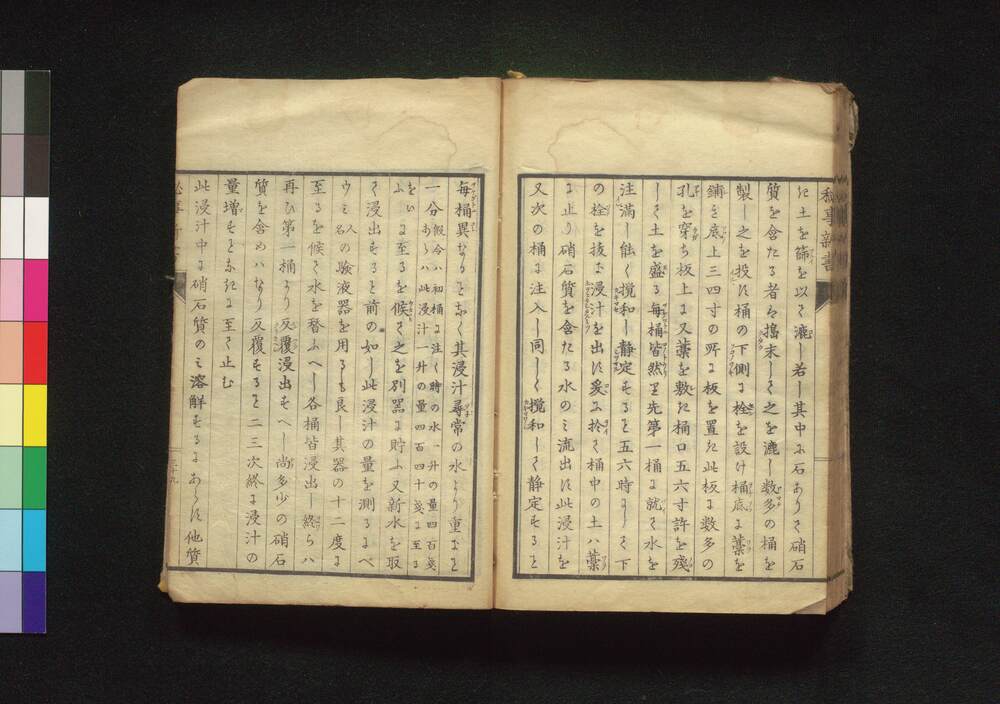 秘事新書
キ土を篩を以て漉し若し其中に石ありて硝石
質を含たる者は搗末して之を漉し数多の桶を
製し之を投し桶の下側に栓を設け桶底に藁を
鋪き底上三四寸の所に板を置き此板に数多の
孔を穿ち板上に又藁を敷き桶口五六寸許を残
して土を盛る毎桶皆然り先第一桶に就て水を
注満し能く攪和し静定すること五六時にして下
の栓を抜き浸汁を出す爰に於て桶中の土ハ藁
に止り硝石質を含たる水のミ流出す此浸汁を
又次の桶に注入し同しく攪和して静定すること
毎桶異なることなく其浸汁尋常の水より重きこと
一分 假令ハ初桶に注く時の水一升の量四百戔
あらハ此浸汁一升の量四百四十戔に至る
をいふに至るを候て之を別器に貯ふ又新水を取
て浸出すること前の如し此浸汁の量を測るにベ
ウミ 人名 の験液器を用るも良し其器の十二度に
至るを候て水を替ふへし各桶皆浸出し終らハ
再ひ第一桶より反覆浸出すへし尚多少の硝石
質を含めハなり反覆すること二三次終に浸汁の
量増すことなきに至て止む
此浸汁中に硝石質のミ溶解するにあらす他質